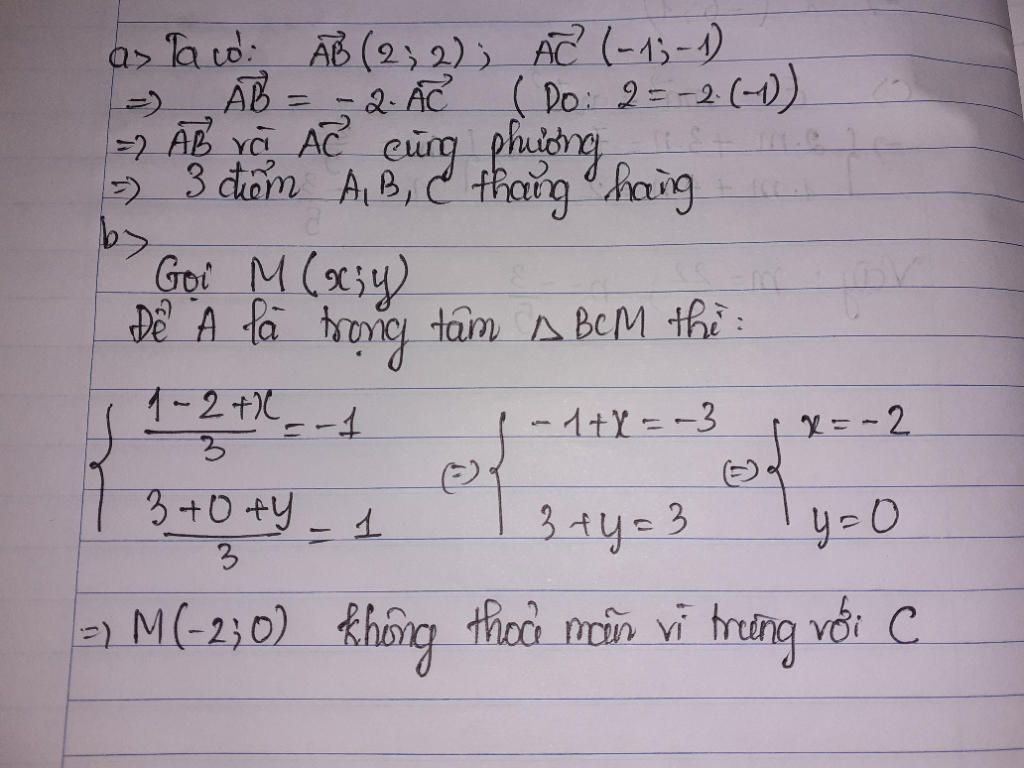 a> Ta có: AB→ (2; 2); AC→ (-1; -1)
=> AB→ = -2. AC→ (Do: 2 = -2. (-1))
=> AB→ và AC→ cùng phương
=> 3 điểm A, B, C thẳng hàng
b>
Gọi M (x; y)
Để A là trọng tâm △ BCM thì:
{ (1 - 2 + x)/3 = -1 ; (3 + 0 + y)/3 = 1 (=) { -1 + x = -3 ; 3 + y = 3 (=) { x = -2 ; y = 0
=> M(-2; 0) không thoả mãn vì trùng với C